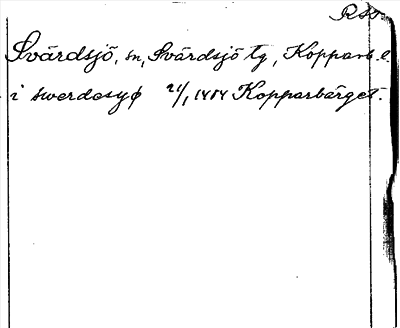 RSv.
Svärdsjö, sn, Svärdsjö tg, Kopparb. l.
i swerdesyø 21/1 1414 Kopparbärget.